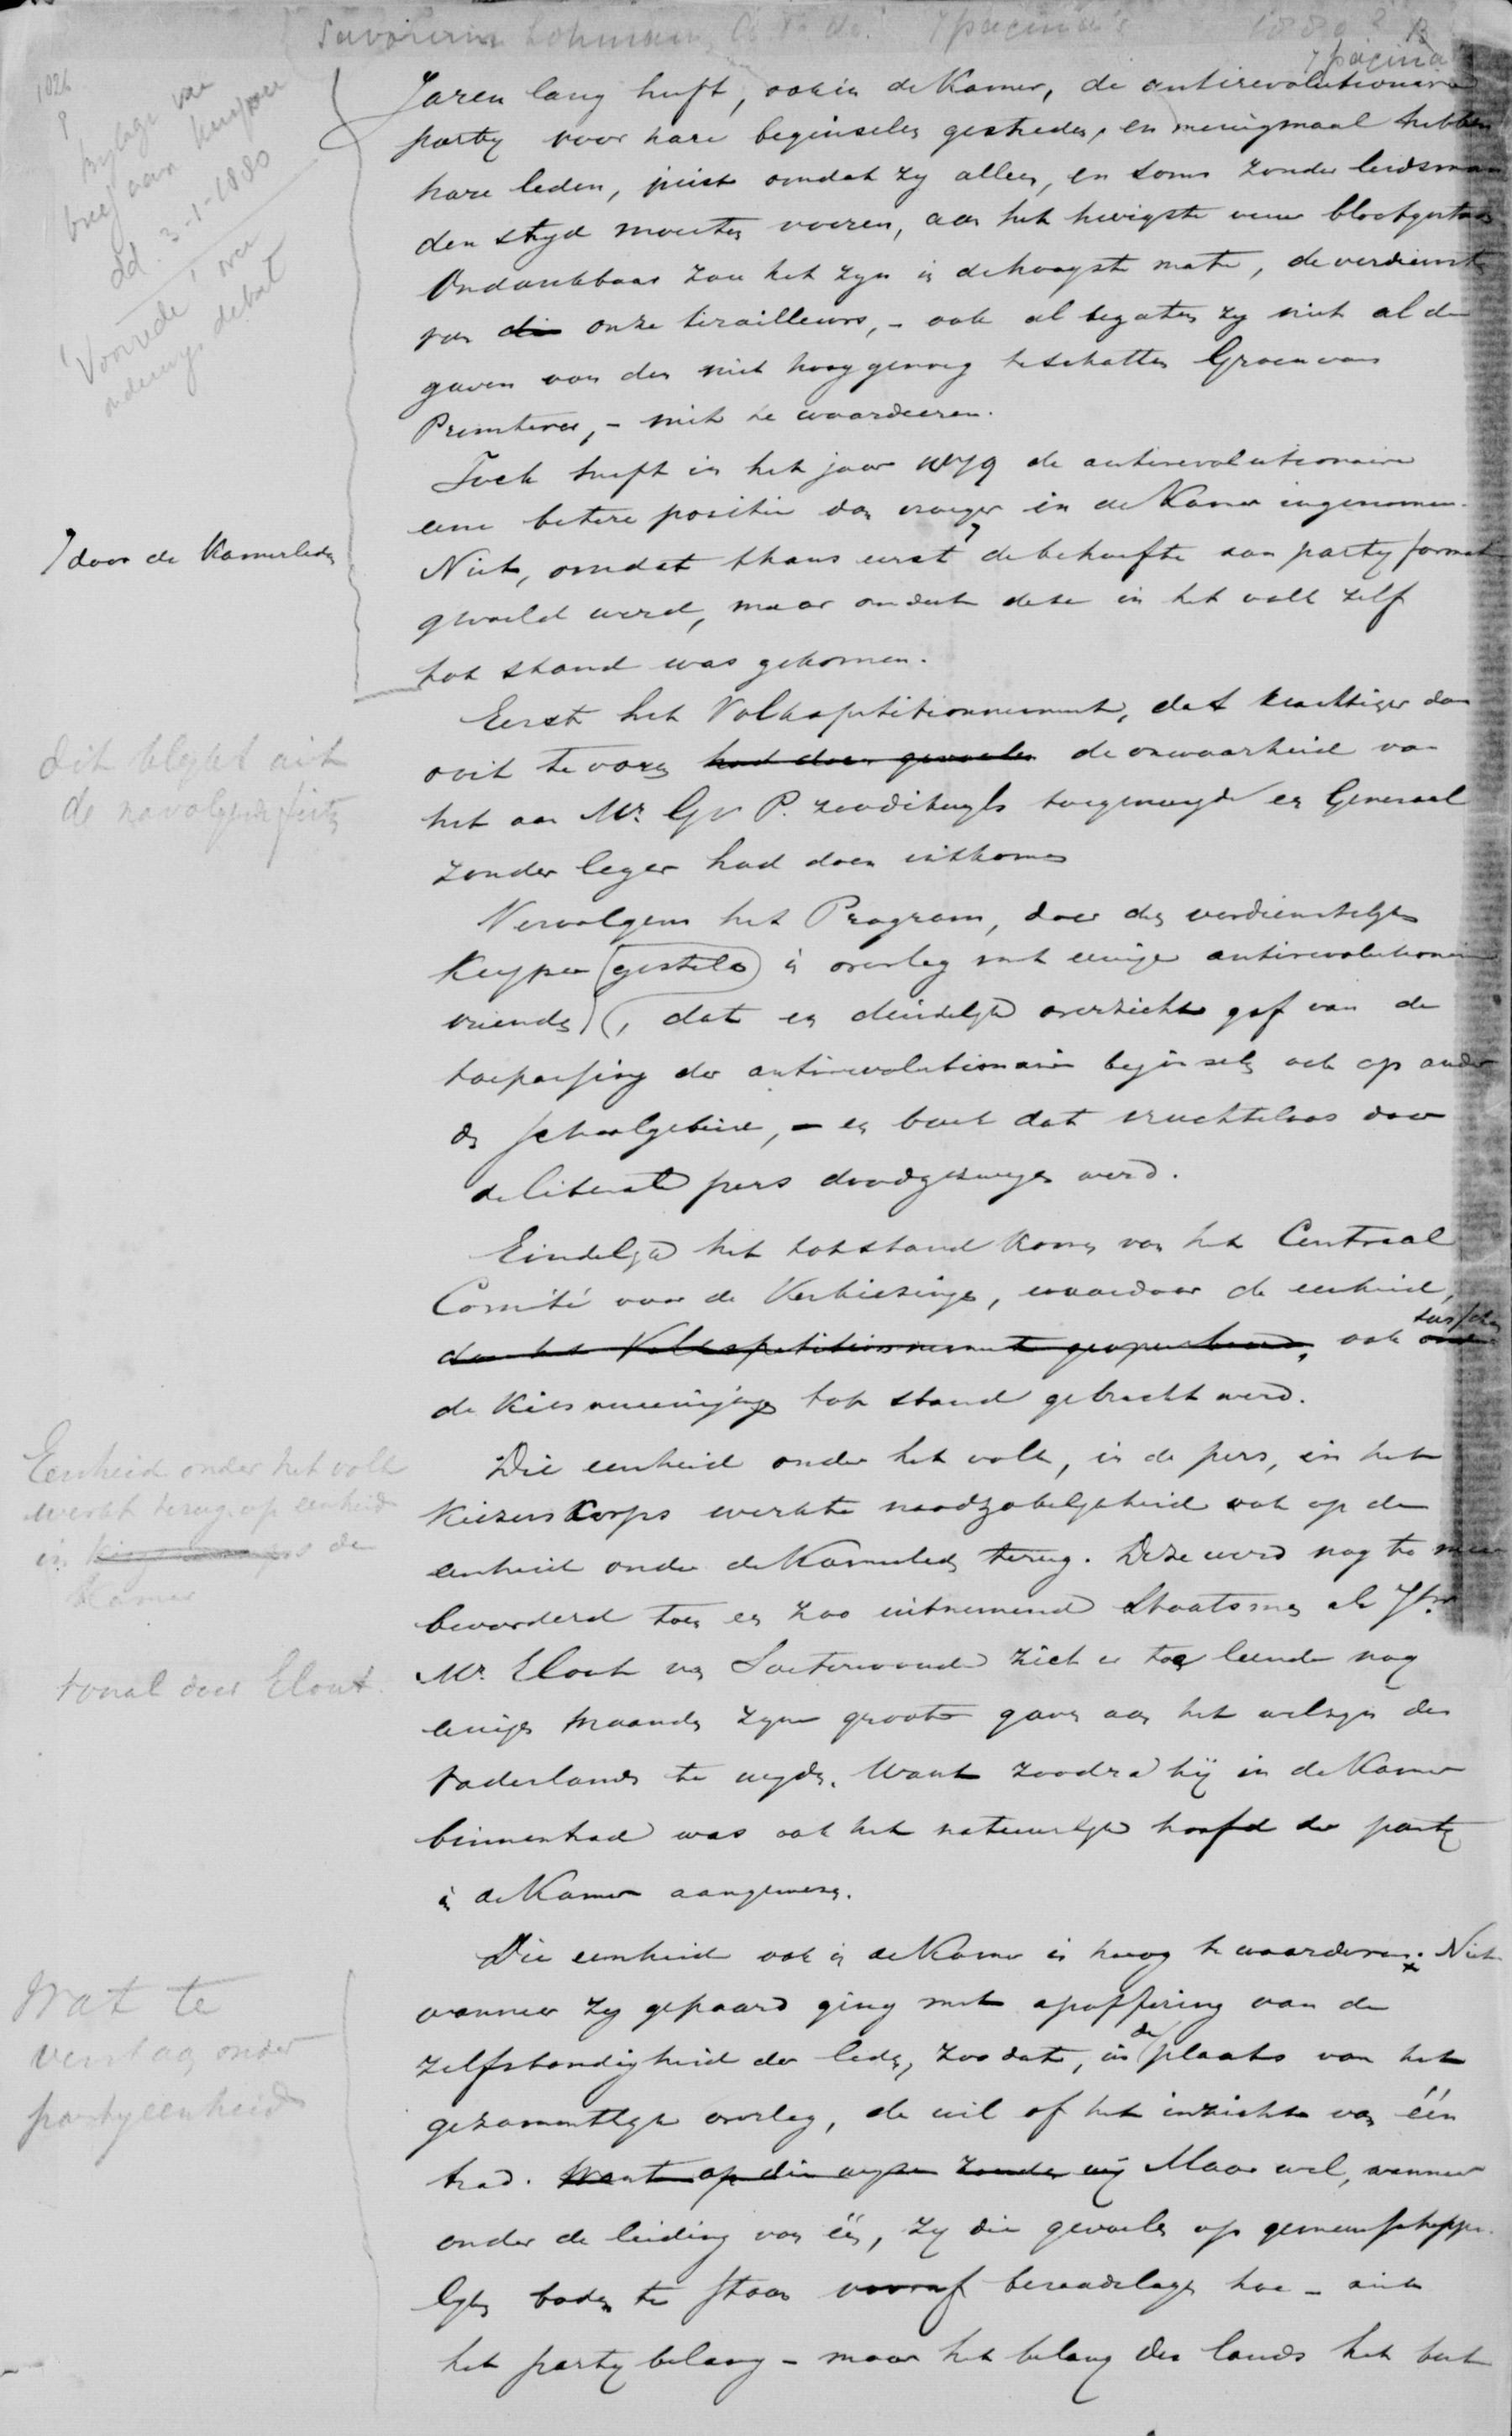 Savornin Lohman, A. F. de. 7 pagina's 1880
7 pagina
1026
Bylage van
brief aan Kuyper
dd. 3-1-1880
'Voorrede' over
onderwijs debat
Jaren lang heeft, ook in de Kamer, de antirevolutionaire
party voor hare beginselen gestreden, en menigmaal hebben
hare leden, juist omdat zy alleen, en soms zonder leidsman
den stryd moesten voeren, aan het hevigste vuur blootgestaan
Ondankbaar zou het zyn in de hoogste mate, de verdienste
van die onze tirailleurs, - ook al bezaten zy niet al de
gaven van den niet hoog genoeg te schatten Groen van
Prinsterer, - niet te waardeeren.
Toch heeft in het jaar 1879 de antirevolutionaire
eene betere positie dan vroeger in de Kamer ingenomen.
Niet, omdat thans eerst de behoefte aan party format
gevoeld werd, maar omdat deze in het volk zelf
tot stand was gekomen.
door de Kamerleden
Eerst het Volkspetitionnement, dat krachtiger dan
ooit te voren had doen gevoelen de onwaarheid van
het aan Mr. G v P. zoo dikwyls toegevoegde een Generaal
zonder leger had doen uitkomen
dit blykt uit
de navolgende feiten
Vervolgens het Program, door den verdienstelyken
Kuyper gesteld in overleg met eenige antirevolutionaire
vrienden, dat een duidelyk overzicht gaf van de
toepassing der antirevolutionaire beginselen ook op ander
dan schoolgebied, - en boek dat vruchteloos door
de liberale pers doodgezwegen werd.
Eindelyk het totstand komen van het Centraal
Comité voor de Verkiezingen, waardoor de eenheid,
door het Volkspetitionnement geopenbaard, ook tusschen
de Kiesvereenigingen tot stand gebracht werd.
Die eenheid onder het volk, in de pers, in het
Kiezerskorps werkte noodzakelykheid ook op de
eenheid onder de Kamerleden terug. Deze werd nog te meer
bevorderd toen een zoo uitnemend Staatsman als Jhr.
Mr. Elout van Soeterwoude zich er toe leende nog
eenige maanden zyne groote gaven aan het welzyn des
Vaderlands te wyden. Want zoodra hij in de Kamer
binnentrad was ook het natuurlyk hoofd der party
in de Kamer aangewezen.
Eenheid onder het volk
werkt terug op eenheid
in Kiezerscorps de
Kamer
vooral door Elout.
Die eenheid ook in de Kamer is hoog te waarderen. Niet
wanneer zy gepaard ging met opoffering van de
zelfstandigheid der leden, zoodat, in de plaats van het
gezamentlyk overleg, de wil of het inzicht van één
trad. Want op die wyze zouden wij Maar wel, wanneer
onder de leiding van één, zy die gevoelen op gemeenschappe-
lyken bodem te staan vooraf beraadslagen hoe - niet
het party belang - maar het belang des lands het best
Wat te
verstaan onder
partyeenheid